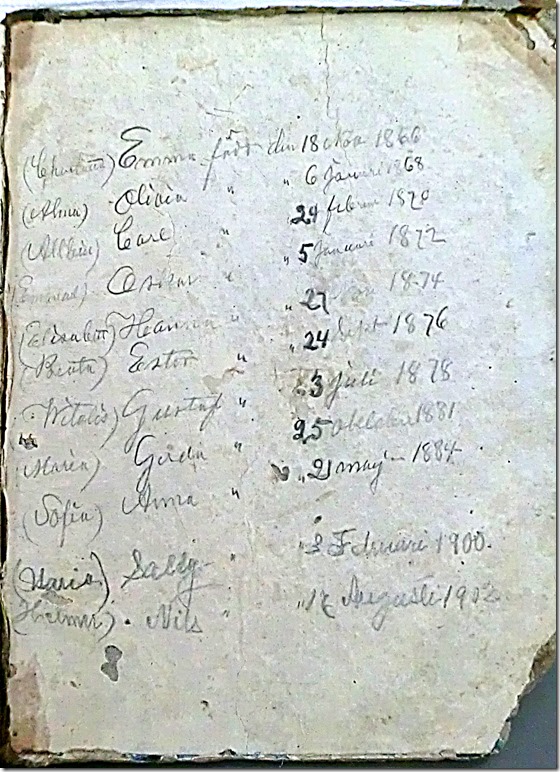 Emma född den 18 Nov 1866
(Alma) Olivia " " 6 Januari 1868
(Albin) Carl " 24 febru 1870
Oskar " " 5 Januari 1872
(Elisabeth) Hanna " " 27 1874
(Beata) Ester " " 24 Sept 1876
(Vitalis) Gustaf " " 3 juli 1878
(Maria) Gerda " 25 Oktober 1881
(Sofia) Anna " " 21 maj 1884
(Maria) Sally " " 3 Februari 1900.
(Helmer) Nils " " 12 Augusti 1902